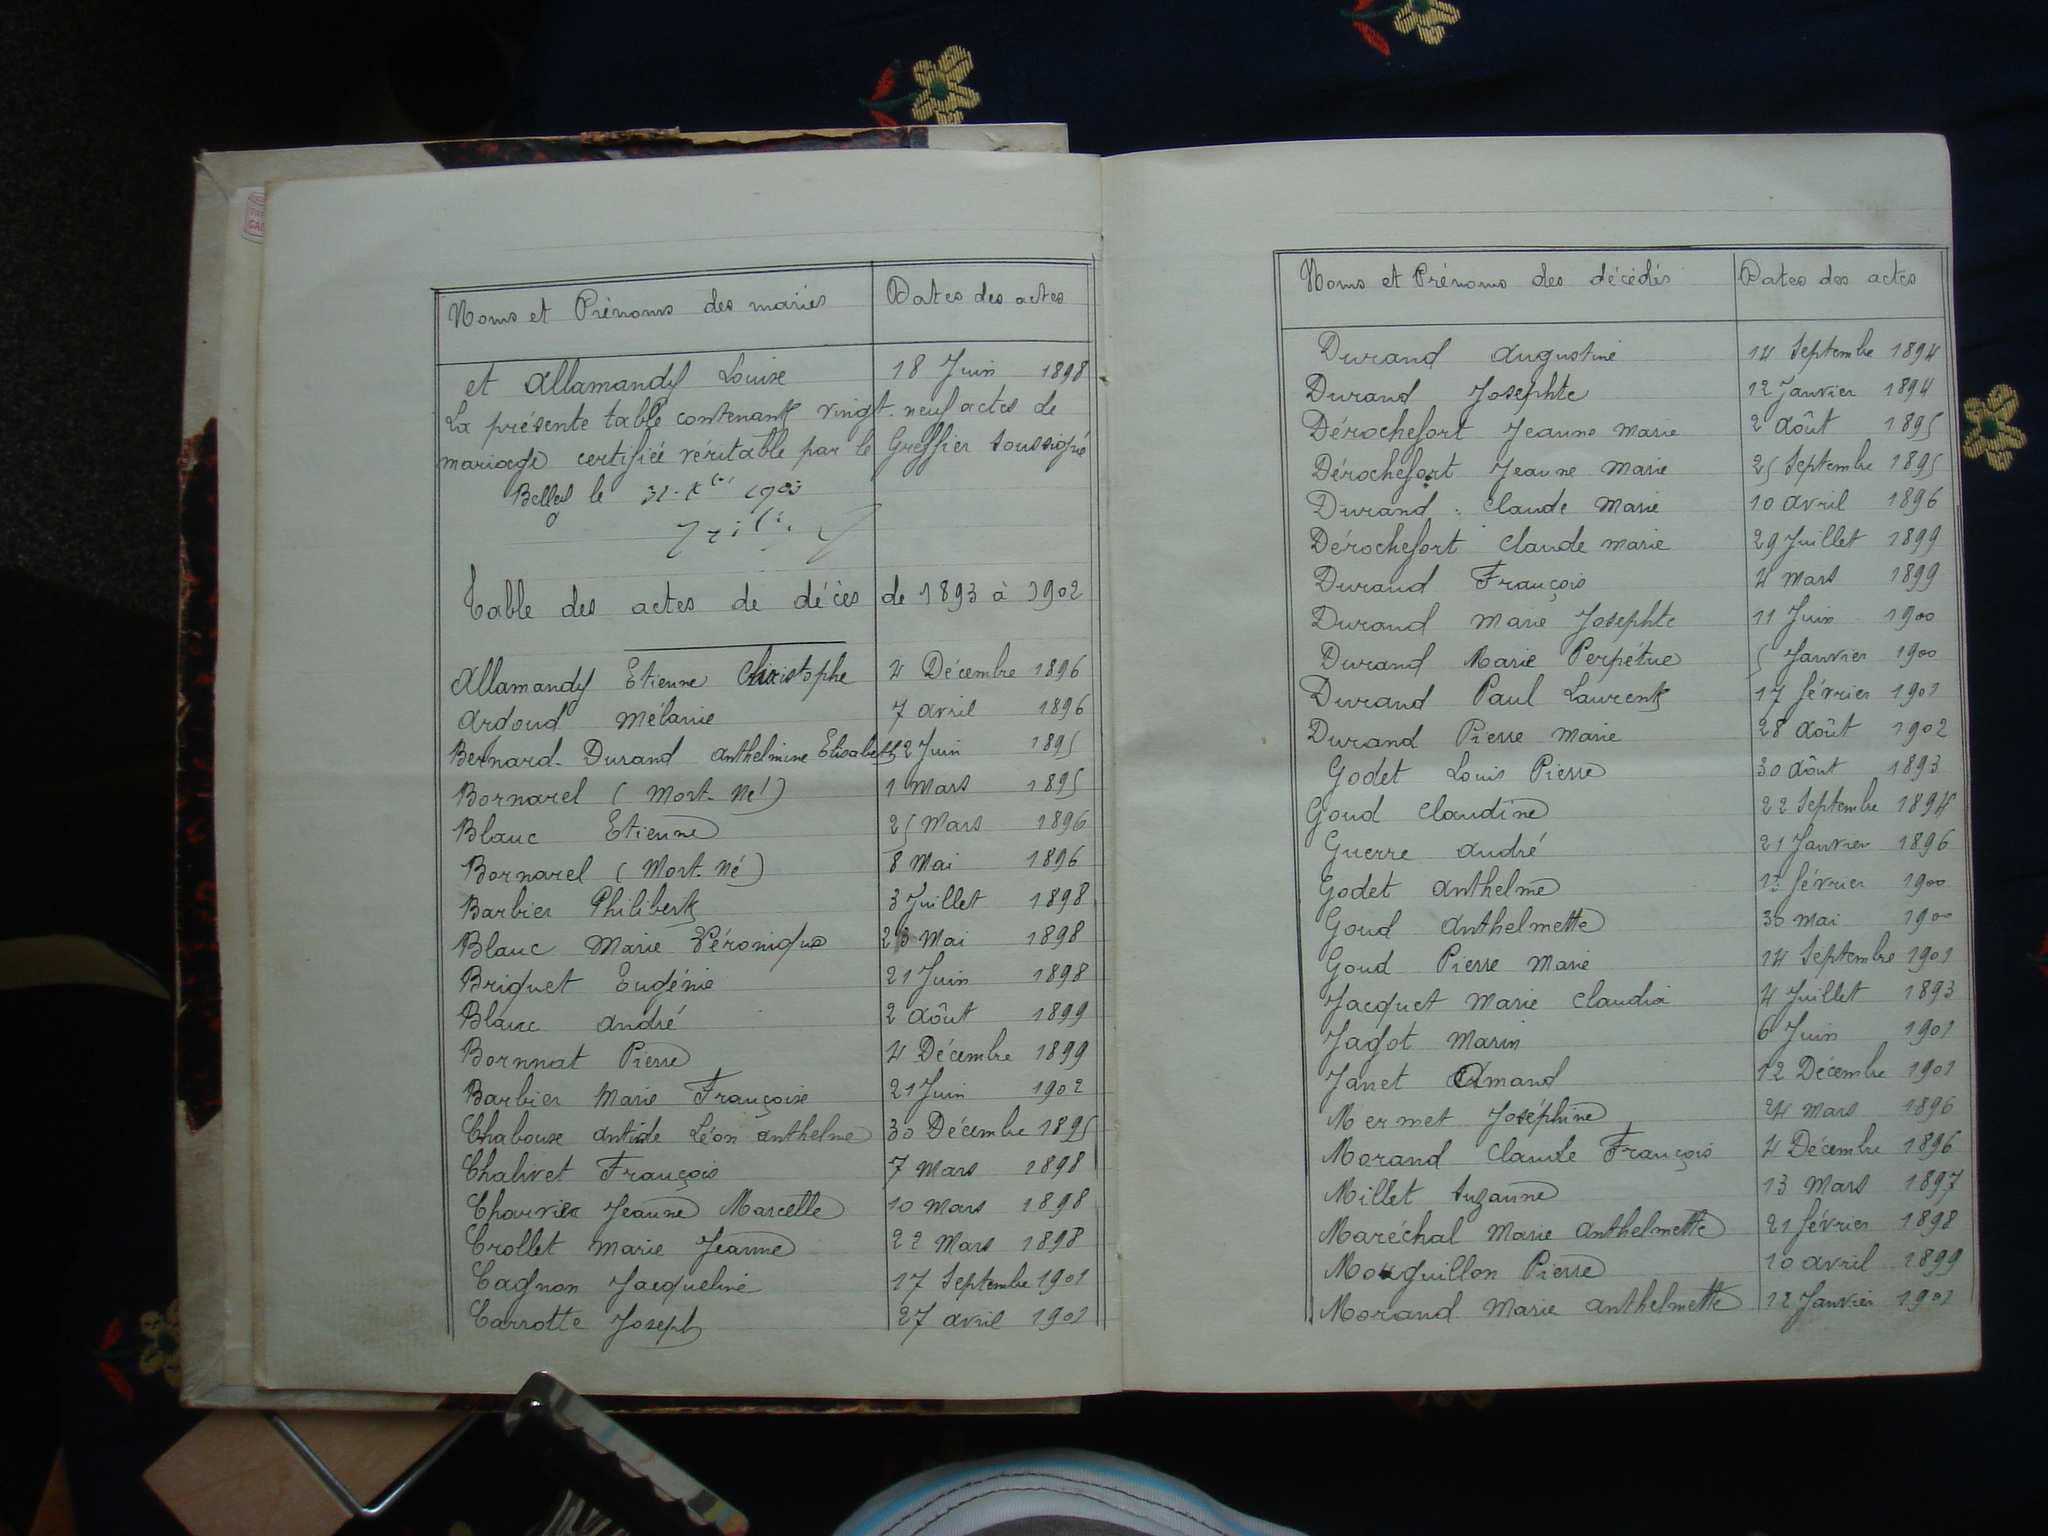 Noms et Prénoms des mariés Dates des actes
et Allamandy Louise 18 Juin 1898
La présente table contenant vingt-neuf actes de
mariage certifiée véritable par le Greffier soussigné
Belley le 31 1903
Table des actes de décès de 1893 à 1902
Allamandy Etienne Christophe 4 Décembre 1896
Ardoud Mélanie 7 avril 1896
Bernard-Durand Anthelmine Elisabeth 2 Juin 1895
Bornarel (Mort-Né) 1 Mars 1895
Blanc Etienne 25 Mars 1896
Bornarel (Mort-Né) 8 Mai 1896
Barbier Philibert 3 Juillet 1898
Blanc Marie Véronique 23 Mai 1898
Briquet Eugénie 21 Juin 1898
Blanc André 2 Août 1899
Bornnat Pierre 4 Décembre 1899
Barbier Marie Françoise 21 Juin 1902
Chaboux Antide Léon Anthelme 30 Décembre 1895
Chalivet François 7 Mars 1898
Charvier Jeanne Marcelle 10 Mars 1898
Crollet Marie Jeanne 22 Mars 1898
Cagnon Jacqueline 17 Septembre 1901
Carrotte Joseph 27 avril 1901
Noms et Prénoms des décédés Dates des actes
Durand Augustine 14 Septembre 1894
Durand Josephte 12 Janvier 1894
Dérochefort Jeanne Marie 2 Août 1895
Dérochefort Jeanne Marie 25 Septembre 1895
Durand Claude Marie 10 avril 1896
Dérochefort Claude Marie 29 Juillet 1899
Durand François 4 Mars 1899
Durand Marie Josephte 11 Juin 1900
Durand Marie Perpétue 5 Janvier 1900
Durand Paul Laurent 17 février 1901
Durand Pierre Marie 28 Août 1902
Godet Louis Pierre 30 Août 1893
Goud Claudine 22 Septembre 1894
Guerre André 21 Janvier 1896
Godet Anthelme février 1900
Goud Anthelmette 30 Mai 1900
Goud Pierre Marie 14 Septembre 1901
Jacquet Marie Claudia 4 Juillet 1893
Jagot Marin 6 Juin 1901
Janet Amand 12 Décembre 1901
Mermet Joséphine 24 Mars 1896
Morand Claude François 4 Décembre 1896
Millet Suzanne 13 Mars 1897
Maréchal Marie Anthelmette 21 février 1898
Mouguillon Pierre 10 avril 1899
Morand Marie Anthelmette 12 Janvier 1901